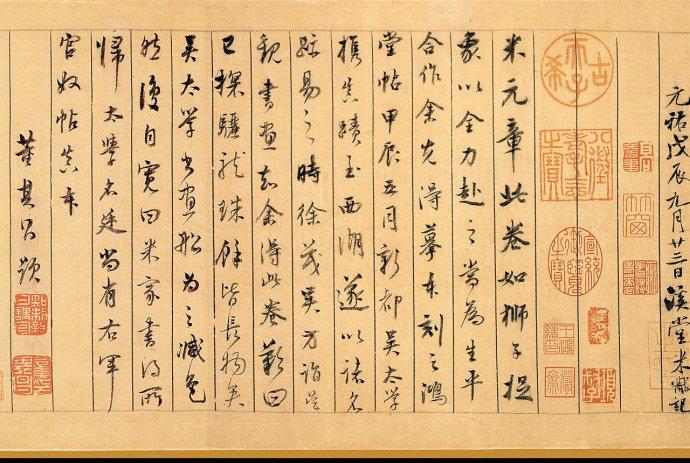 元祐戊辰九月廿三日溪堂米黻記
古希天子
八徵耄念之寶
宣統御覽之寶
米元章此卷如獅子捉
象以全力赴之當為生平
合作余先得摹本刻之鴻
堂帖甲辰五月新都吳太學
携真蹟至西湖遂以諸名
跡易之時徐茂吳方詣吳
觀書畫知余得此卷歎曰
已探驪龍珠餘皆長物矣
吳太學書畫船為之減色
然復自寬曰米家書得所
歸太學名廷尚有右軍
官奴帖真本
董其昌題